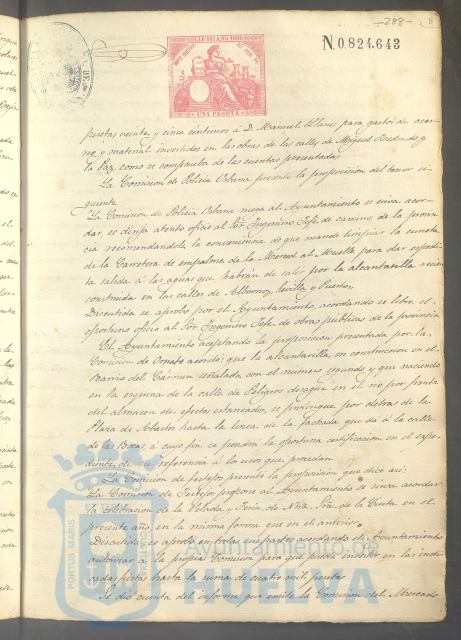 -288-
8
N.0.824.643
SELLO 11º AÑO 1880
UNA PESETA
pesetas veinte y cinco céntimos á D. Manuel Llanes para gastos de aca-
rreo y material invertidos en las obras de las calles de Miguel Redondo y
la Paz, como se comprueba de las cuentas presentadas.
La Comision de Policia Urbana presentó la proposicion del tenor si-
guiente
"La Comision de Policia Urbana ruega al Ayuntamiento se sirva acor-
dar se dirija atento oficio al Sor. Ingeniero Jefe de caminos de la provin
cia recomendandole la conveniencia de que mande limpiar la cuneta
de la Carretera de empalme de la Merced al Muelle para dar expedi-
ta salida á las aguas que habrán de salir por la alcantarilla recien
construida en las calles de Albornoz, Sevilla y Puerto,
Discutida se aprobó por el Ayuntamiento, acordando se libre el
oportuno oficio al Sor. Ingeniero Jefe de obras publicas de la provincia
El Ayuntamiento aceptando la proposicion presentada por la
Comision de Ornato acordó: que la alcantarilla en construccion en el
Barrio del Cármen señalada con el número segundo y que naciendo
en la esquina de la calle de Peligros desagua en el rio por frente
del almacen de efectos estancados, se prolongue por detras de la
Plaza de Abastos hasta la linea de la fachada que dá á la calle
de las Bocas, á cuyo fin se pondrá la oportuna certificacion en el expe-
diente de su referencia á los usos que procedan.
La Comision de festejos presentó la proposicion que dice asi:
"La Comision de Festejos propone al Ayuntamiento se sirva acordar
la celebracion de la Velada y Feria de Ntra. Sra. de la Cinta en el
presente año, en la misma forma que en el anterior,
Discutida, se aprobó en todas sus partes acordando el Ayuntamiento
autorizar á la propia Comision para que pueda invertir en las indi-
cadas fiestas hasta la suma de cuatro mil pesetas
Se dió cuenta del informe que emite la Comision del Mercado
PORTUS MARIS
Ayuntamiento de
HUELVA